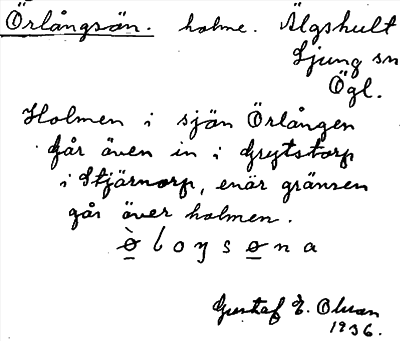 Örlångsön. holme. Älgshult
Ljung sn
Ögl.
Holmen i sjön Örlången
går även in i Grytstorp
i Stjärnorp, enär gränsen
går över holmen.
ø̀ l o ŋ s ø n a
Gustaf E. Olsson
1936.